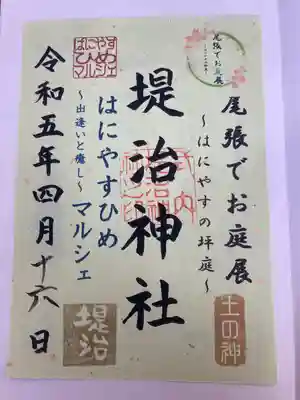 尾張でお庭展
尾張でお庭展
～はにやすの坪庭～
土の神
堤治神社
はにやすひめ
～出逢いと癒し～マルシェ
堤治
はにやす
ひめ
マルシェ
令和五年四月十六日